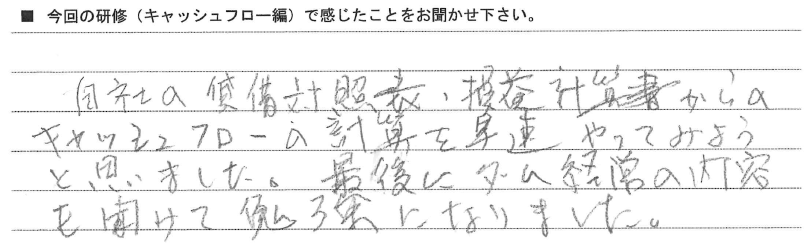 ■ 今回の研修（キャッシュフロー編）で感じたことをお聞かせ下さい。
自社の貸借計照表、損益計算書からの
キャッシュフローの計算を早速やってみよう
と思いました。最後にダム経営の内容
も聞けて勉強になりました。